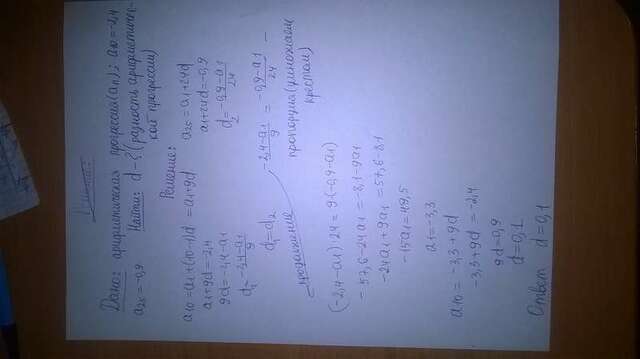 Дано: арифметическая прогрессия (an); a10=-2,4
a25=-0,9 Найти: d-? (разность арифметичес-
кой прогрессии)
Решение:
a10=a1+(10-1)d=a1+9d
a25=a1+24d
a1+9d=-2,4
a1+24d=-0,9
9d=-2,4-a1
d1=-2,4-a1/9
d2=-0,9-a1/24
d1=d2
-2,4-a1/9=-0,9-a1/24 - 
пропорция (умножаем
крестом)
продолжение
(-2,4-a1)24=9(-0,9-a1)
-57,6-24a1=-8,1-9a1
-24a1+9a1=57,6-8,1
-15a1=49,5
a1=-3,3
a10=-3,3+9d
-3,3+9d=-2,4
9d=0,9
d=0,1
Ответ d=0,1